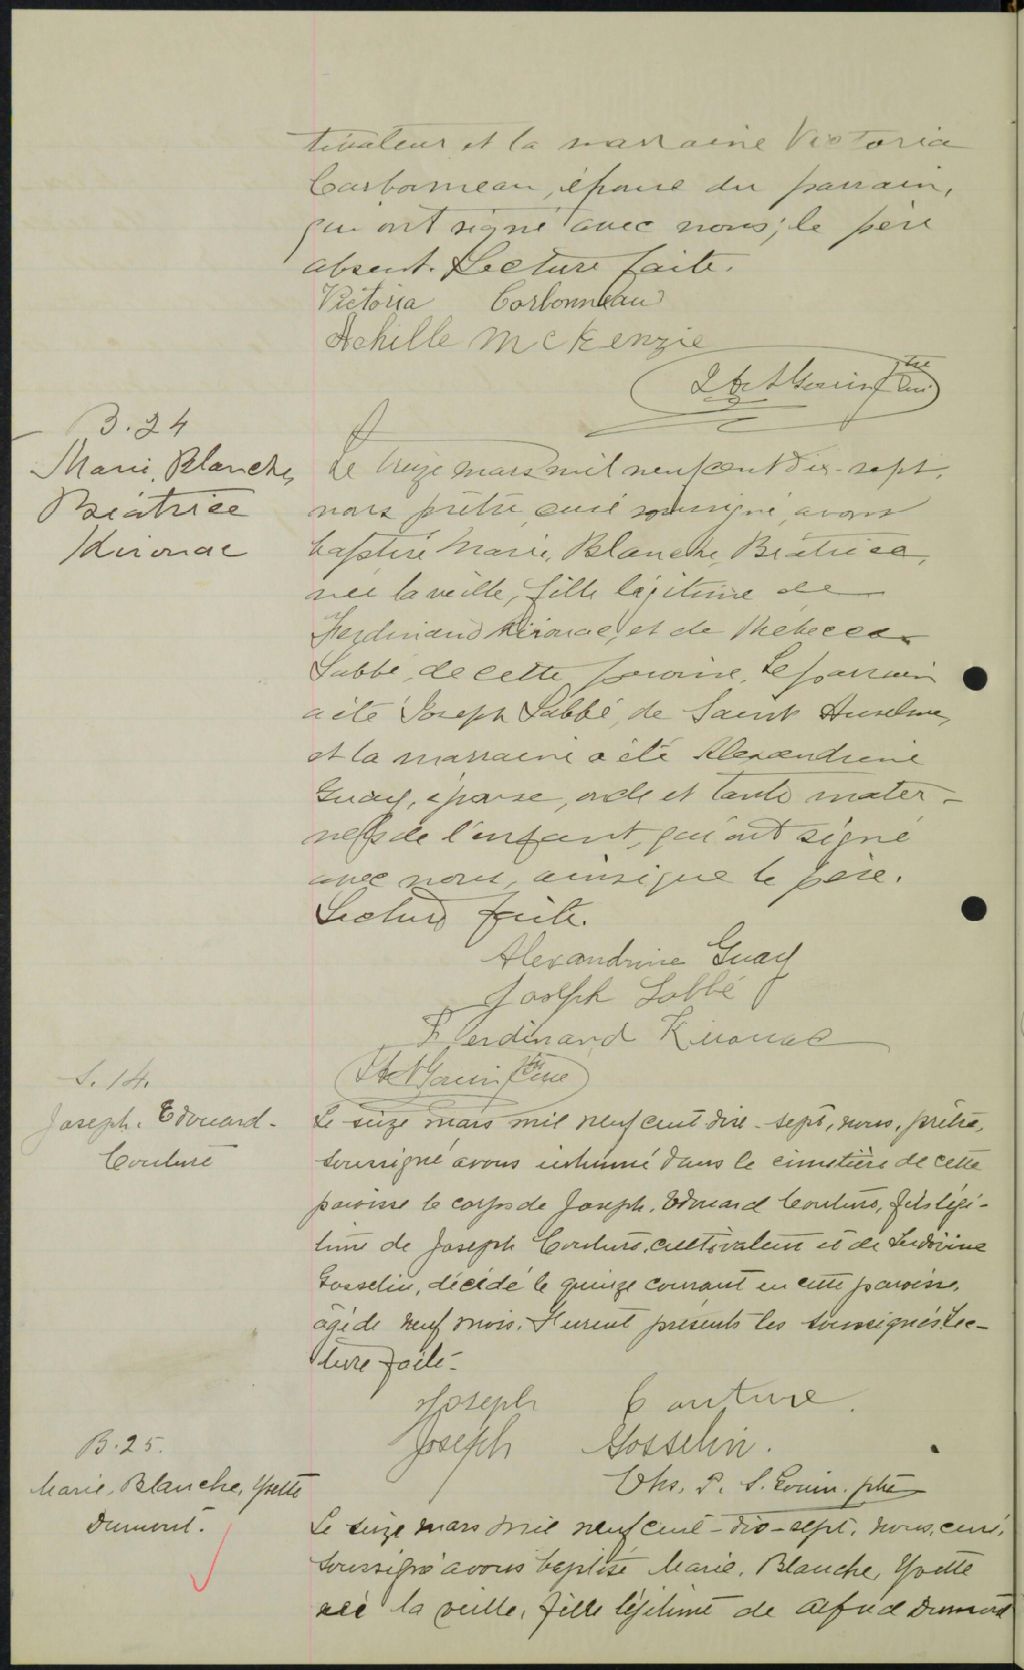 tivateur et la marraine Victoria
Carbonneau, épouse du parrain,
qui ont signé avec nous; le père
absent. Lecture faite.
Victoria Carbonneau
Achille McKenzie
ptre
curé
B. 24
Marie, Blanche,
Béatrice
Kirouac
Le treize mars mil neuf cent dix-sept,
nous prêtre, curé soussigné, avons
baptisé Marie, Blanche, Béatrice,
née la veille, fille légitime de
Ferdinand Kirouac, et de Rebecca
Labbé, de cette paroisse. Le parrain
a été Joseph Labbé, de Saint Anselme,
et la marraine a été Alexandrine
Guay, épouse, oncle et tante mater-
nels de l'enfant, qui ont signé
avec nous, ainsi que le père.
Lecture faite.
Alexandrine Guay
Joseph Labbé
Ferdinand Kirouac
ptre curé
S. 14.
Joseph. Edouard-
Couture
Le seize mars mil neuf cent dix-sept, nous, prêtre,
soussigné avons inhumé dans le cimetière de cette
paroisse le corps de Joseph. Edouard Couture, fils légi-
time de Joseph Couture, cultivateur et de Ludivine
Gosselin, décédé le quinze courant en cette paroisse,
âgé de neuf mois. Furent présents les soussignés. Lec-
ture faite-
Joseph Couture.
Joseph Gosselin.
Chs. P. S. ptre
B. 25.
Marie, Blanche, Yvette
Dumont.
Le seize mars mil neuf cent-dix-sept, nous, curé,
soussigné avons baptisé Marie, Blanche, Yvette
née la veille, fille légitime de Alfred Dumont